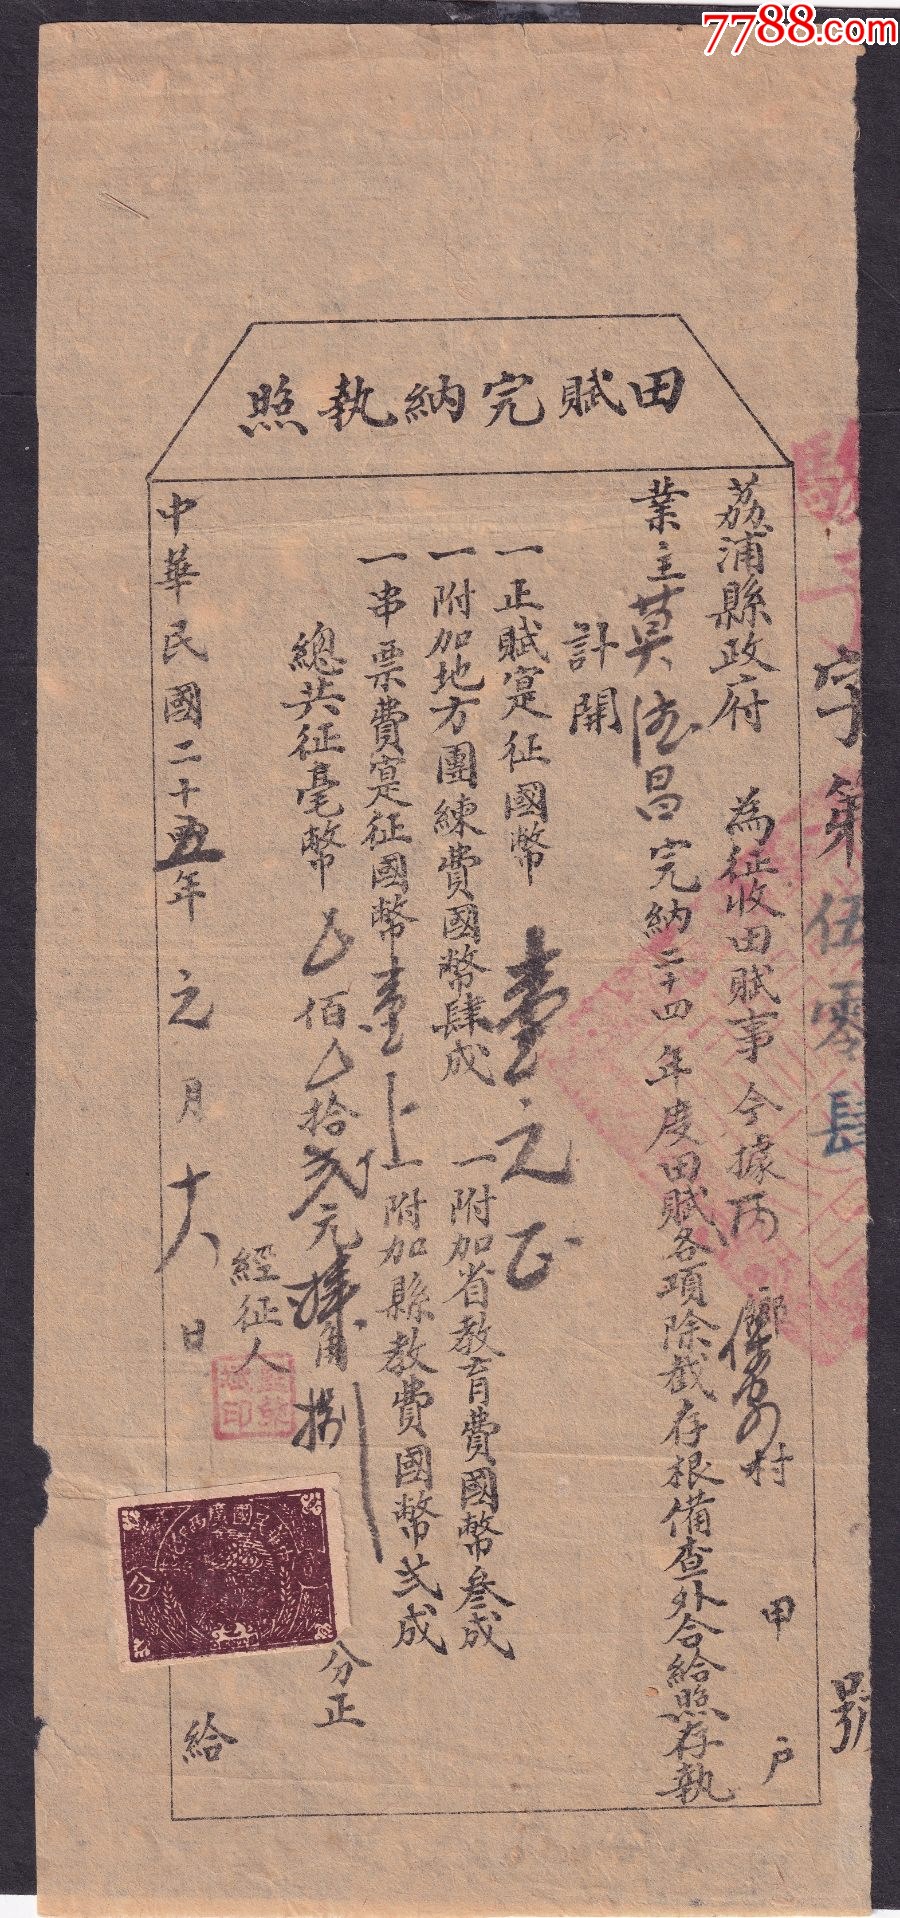 7788.com
田賦完納執照
字第伍零肆號
荔浦縣政府 為征收田賦事今據丙鄉村甲戶
業主莫德昌完納二十四年度田賦各項除截存根備查外合給照存執
計開
一正賦寔征國幣壹元正
一附加地方團練費國幣肆成 一附加省教育費國幣叁成
一串票費寔征國幣壹 一附加縣教費國幣弍成
總共征毫幣 佰 拾弍元肆角捌分正
經征人
中華民國二十五年元月十八日 給